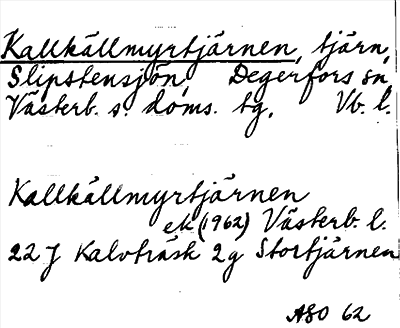 Kallkällmyrtjärnen, tjärn,
Slipstensjön, Degerfors sn,
Västerb. s. doms. tg, Vb. l.
Kallkällmyrtjärnen
ek (1962) Västerb. l.
22 J Kalvträsk 2g Stortjärnen
ASO 62